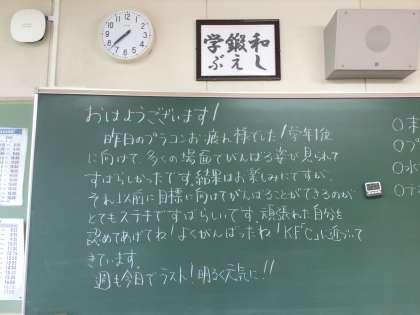 和し
鍛え
学ぶ
おはようございます!
昨日のブラコンお疲れ様でした!学年1位
に向けて、多くの場面でがんばる姿が見られて
すばらしかったです。結果はお楽しみにですが、
それ以前に目標に向けてがんばることができるのが
とてもステキですばらしいです。頑張れた自分を
認めてあげてね!よくがんばったね!KFCに近づいて
きています。
週も今日でラスト!明るく元気に!!